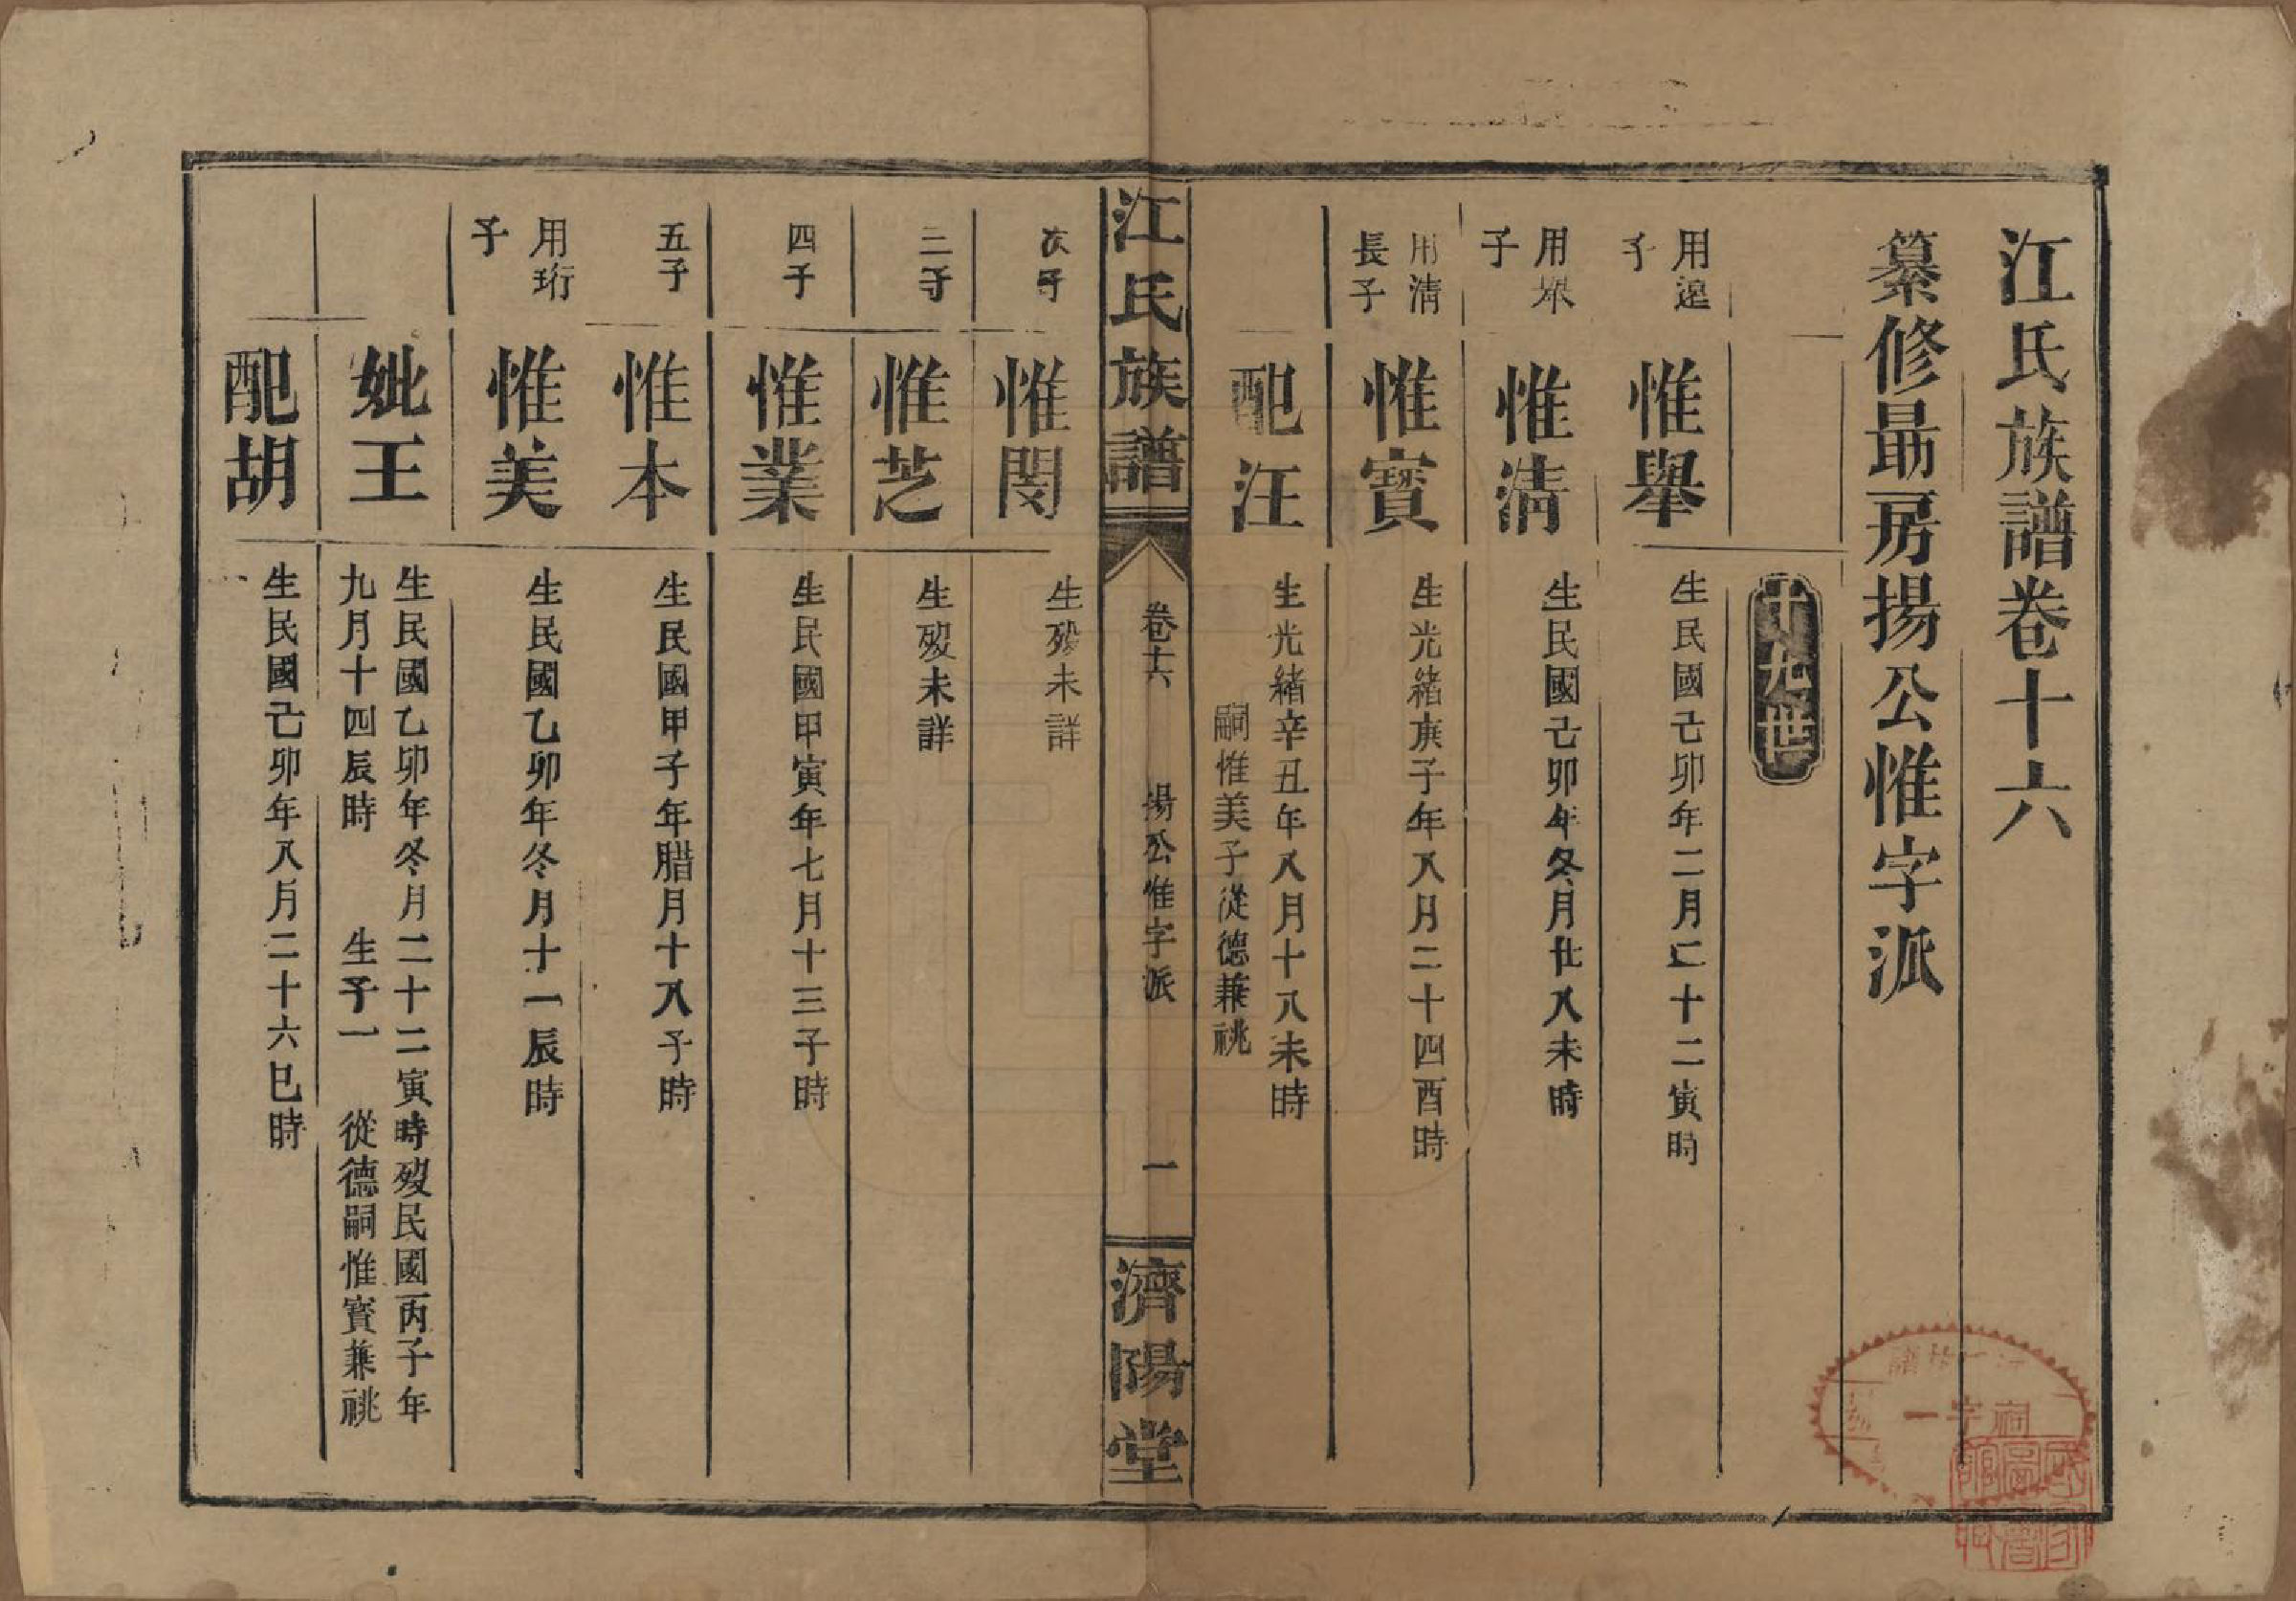 江氏族譜卷十六
纂修最房揚公惟字派
十九世
用遑子
惟舉
生民國己卯年二月二十二寅時
用子
惟淸
生民國己卯年冬月廿八未時
用淸長子
惟寶
生光緒庚子年八月二十四酉時
配汪
生光緒辛丑年八月十八未時
嗣惟美子從德兼祧
江氏族譜
卷十六
揚公惟字派
一
濟陽堂
次子
惟閔
生歿未詳
三子
惟芝
生歿未詳
四子
惟業
生民國甲寅年七月十三子時
五子
惟本
生民國甲子年腊月十八子時
用珩子
惟美
生民國乙卯年冬月十一辰時
妣王
生民國乙卯年冬月二十二寅時歿民國丙子年
九月十四辰時 生子一 從德嗣惟寶兼祧
配胡
生民國己卯年八月二十六巳時